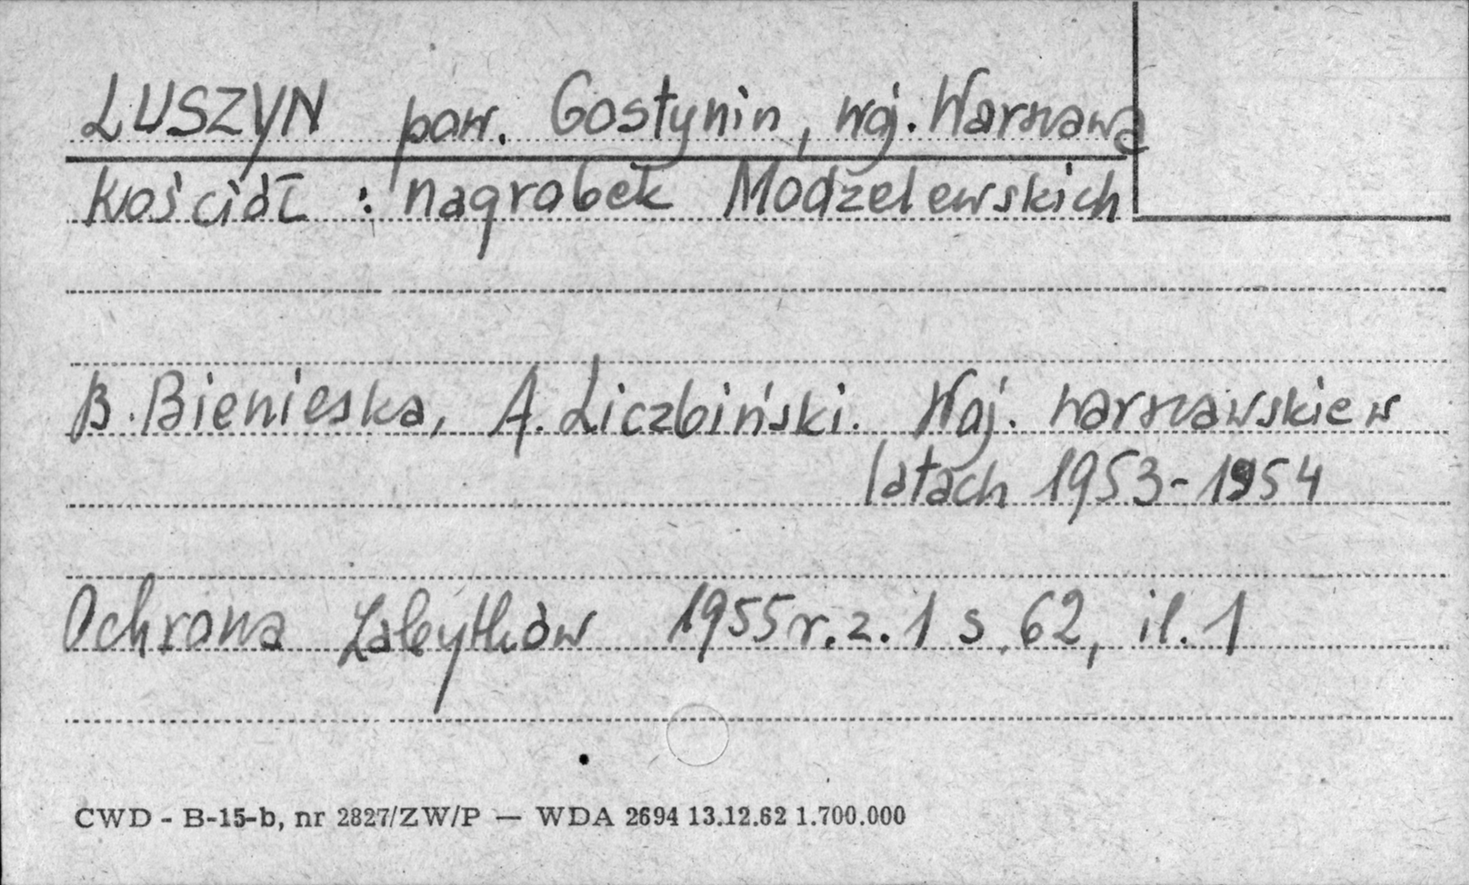 LUSZYN pow. Gostynin, woj. Warszawa
Kościół : nagrobek Modzelewskich
B. Bienieska, A. Liczbiński. Woj. warszawskie w
latach 1953-1954
Ochrona Zabytków 1955 r. z. 1 s. 62, il. 1
CWD - B-15-b, nr 2827/ZW/P — WDA 2694 13.12.62 1.700.000